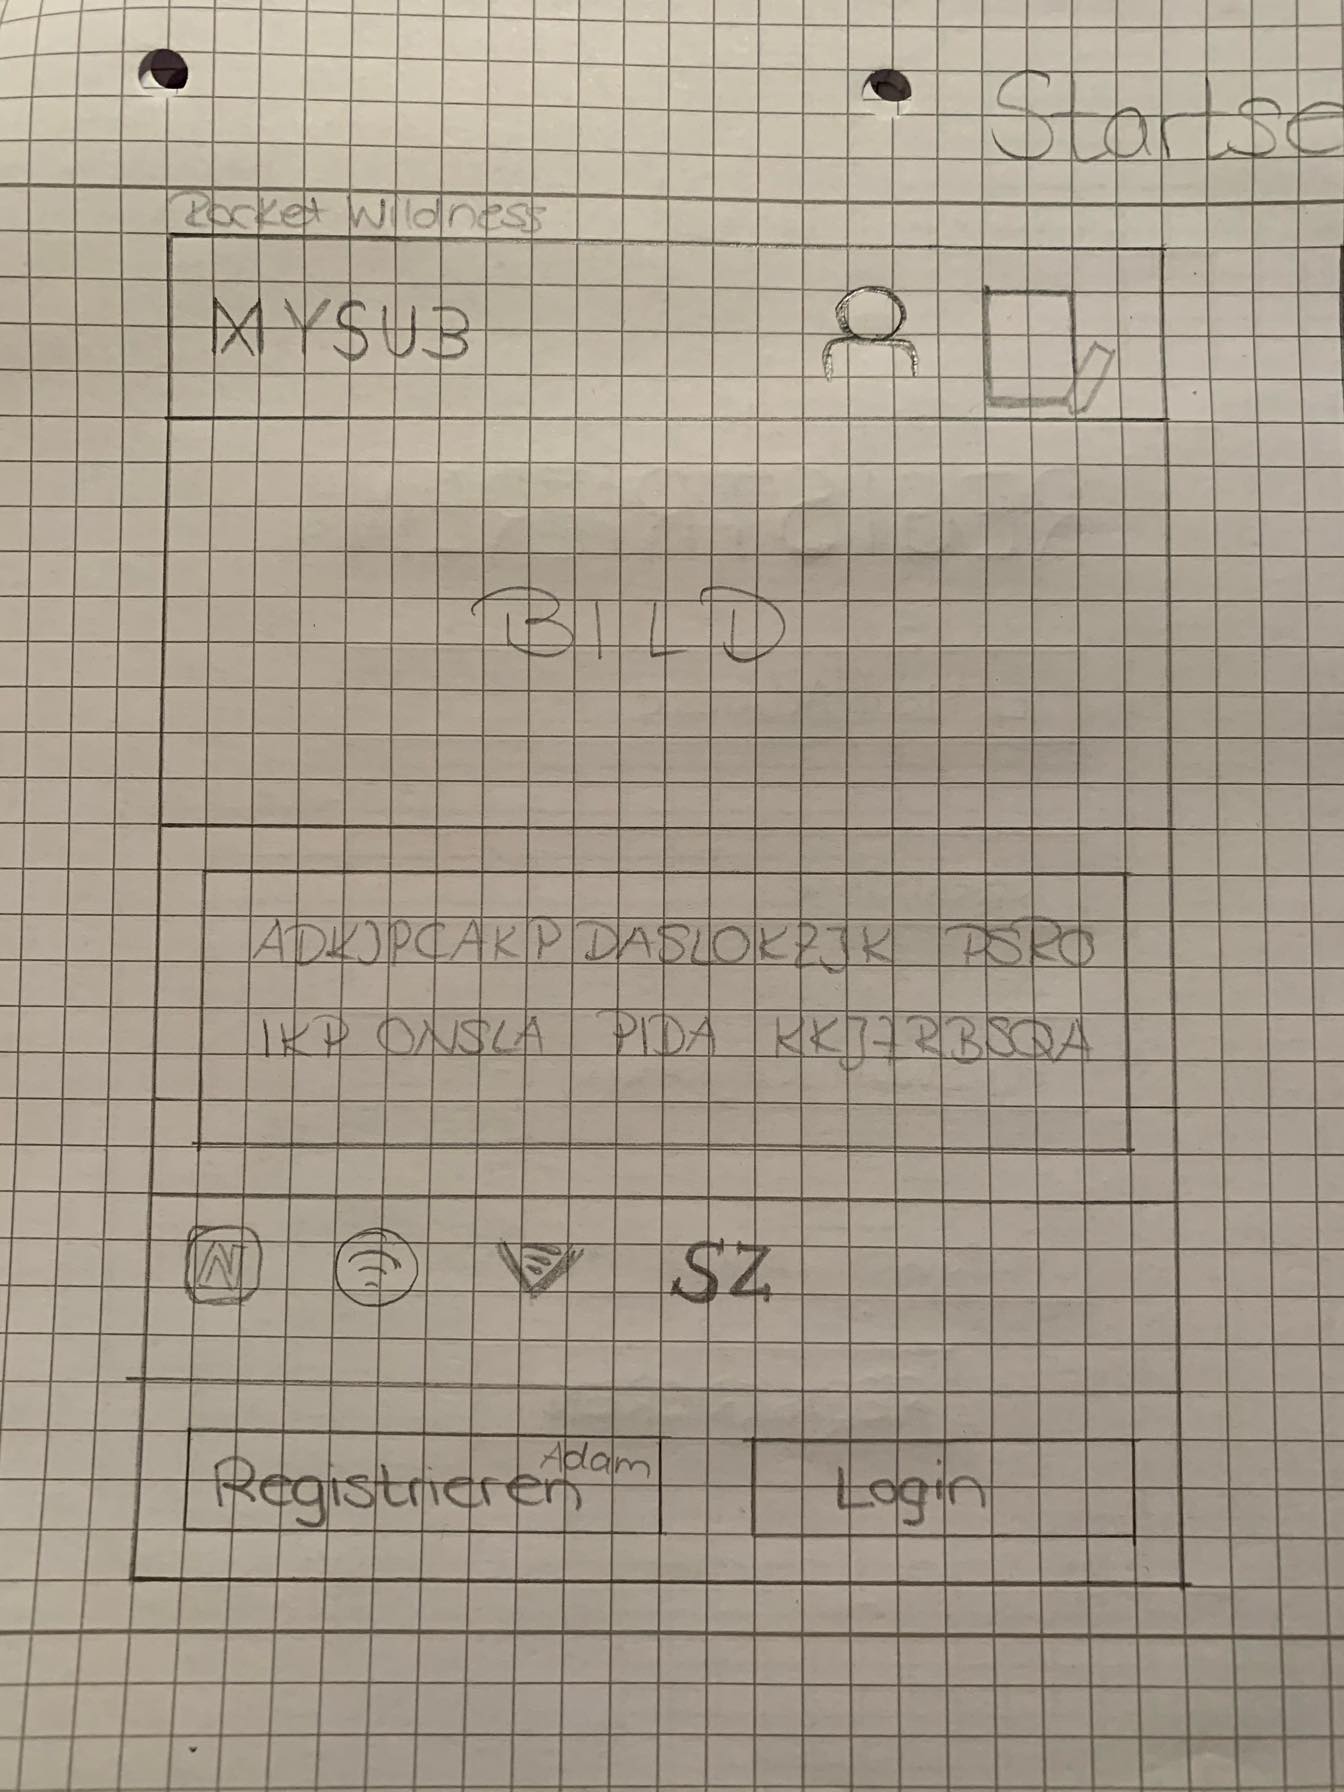 Startse
Rocket Wildness
MYSUB
BILD
ADKJPCAKP DASLOKZJK PSRO
IKP ONSLA PIDA KKJJRBSQA
N
SZ
Adam
Registrieren
Login